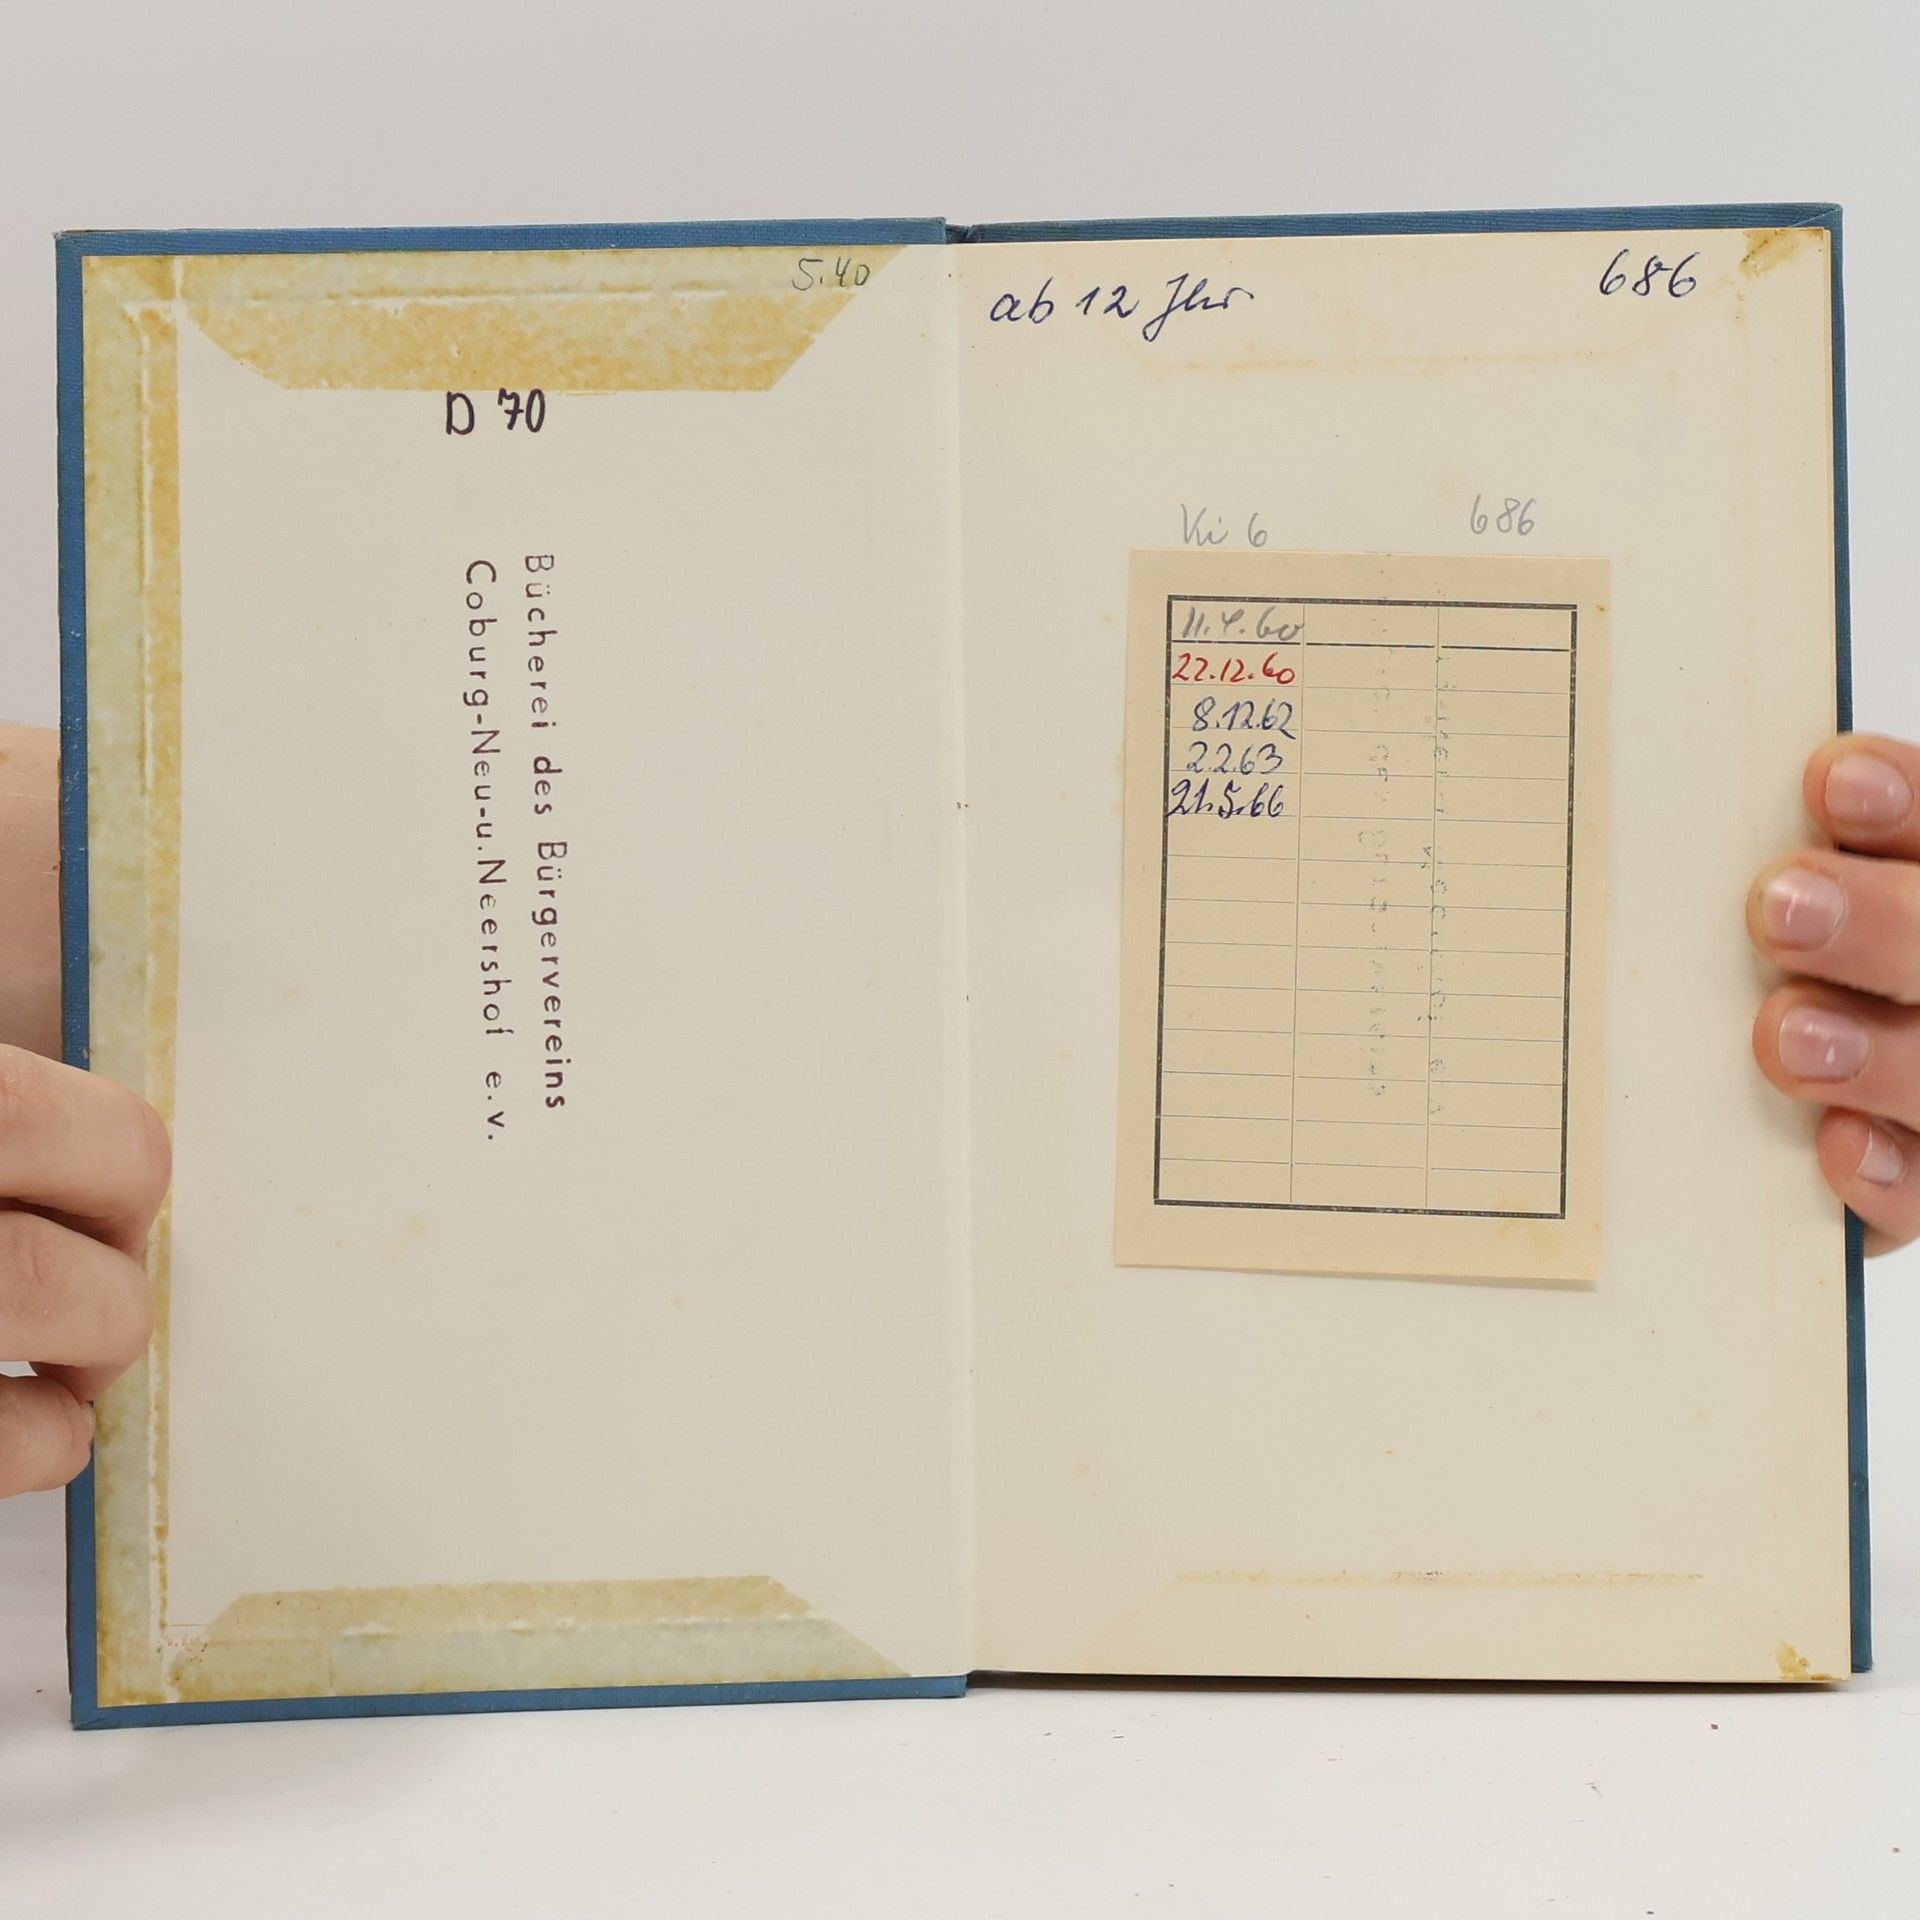 5.40
D 70
Bücherei des Bürgervereins
Coburg-Neu-u.Neershof e.v.
ab 12 Jhr
686
Ki 6
686
11.4.60
22.12.60
8.12.62
2.2.63
21.5.66